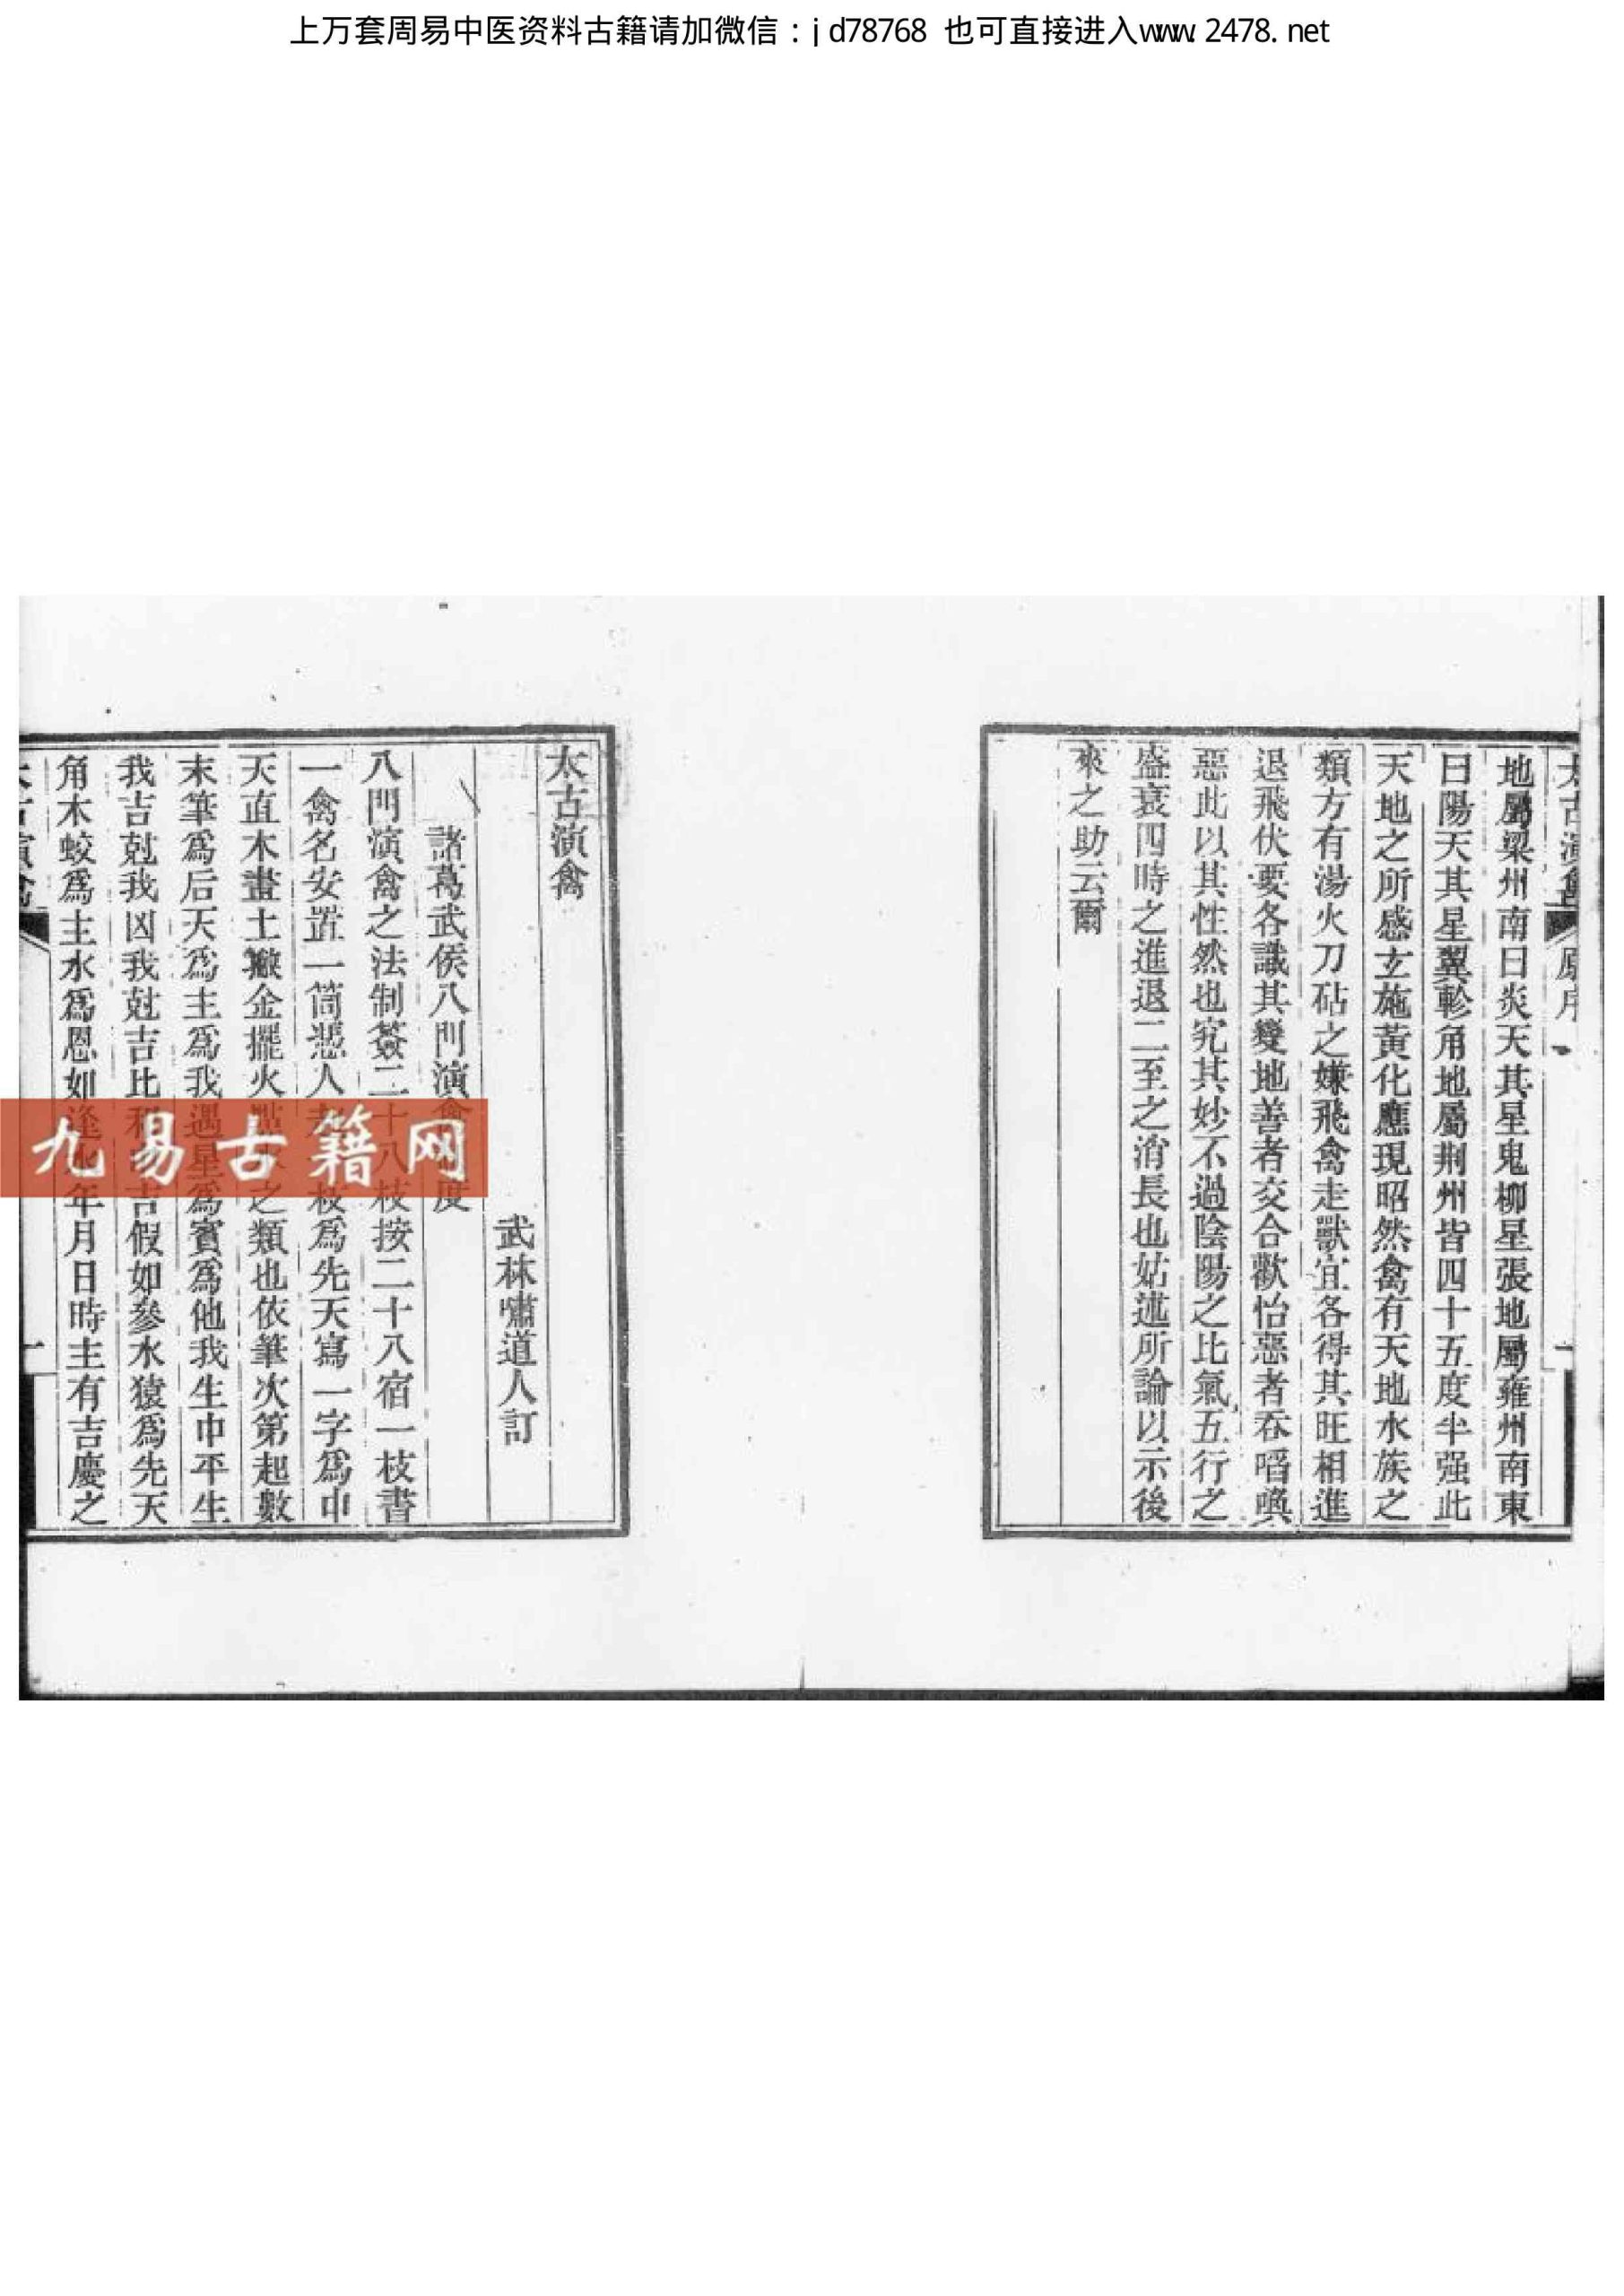 上万套周易中医资料古籍请加微信：jd78768 也可直接进入www.2478.net
太古演禽 原序 一
地屬梁州南曰炎天其星鬼柳星張地屬雍州南東
曰陽天其星翼軫角地屬荆州皆四十五度半强此
天地之所感玄施黃化應現昭然禽有天地水族之
類方有湯火刀砧之嫌飛禽走獸宜各得其旺相進
退飛伏要各識其變地善者交合歡怡惡者吞㗖
惡此以其性然也究其妙不過陰陽之比氣五行之
盛衰四時之進退二至之消長也姑述所論以示後
來之助云爾
太古演禽
武林嘯道人訂
諸葛武侯八門演禽度
八門演禽之法制簽二十八枝按二十八宿一枝書
一禽名安置一筒憑人枝爲先天寫一字爲中
天直木畫土撇金擺火之類也依筆次第起數
末筆爲后天爲主爲我遇星爲賓爲他我生中平生
我吉尅我凶我尅吉比吉假如參水猿爲先天
角木蛟爲主水爲恩如逢年月日時主有吉慶之
太古演禽 一
九易古籍网